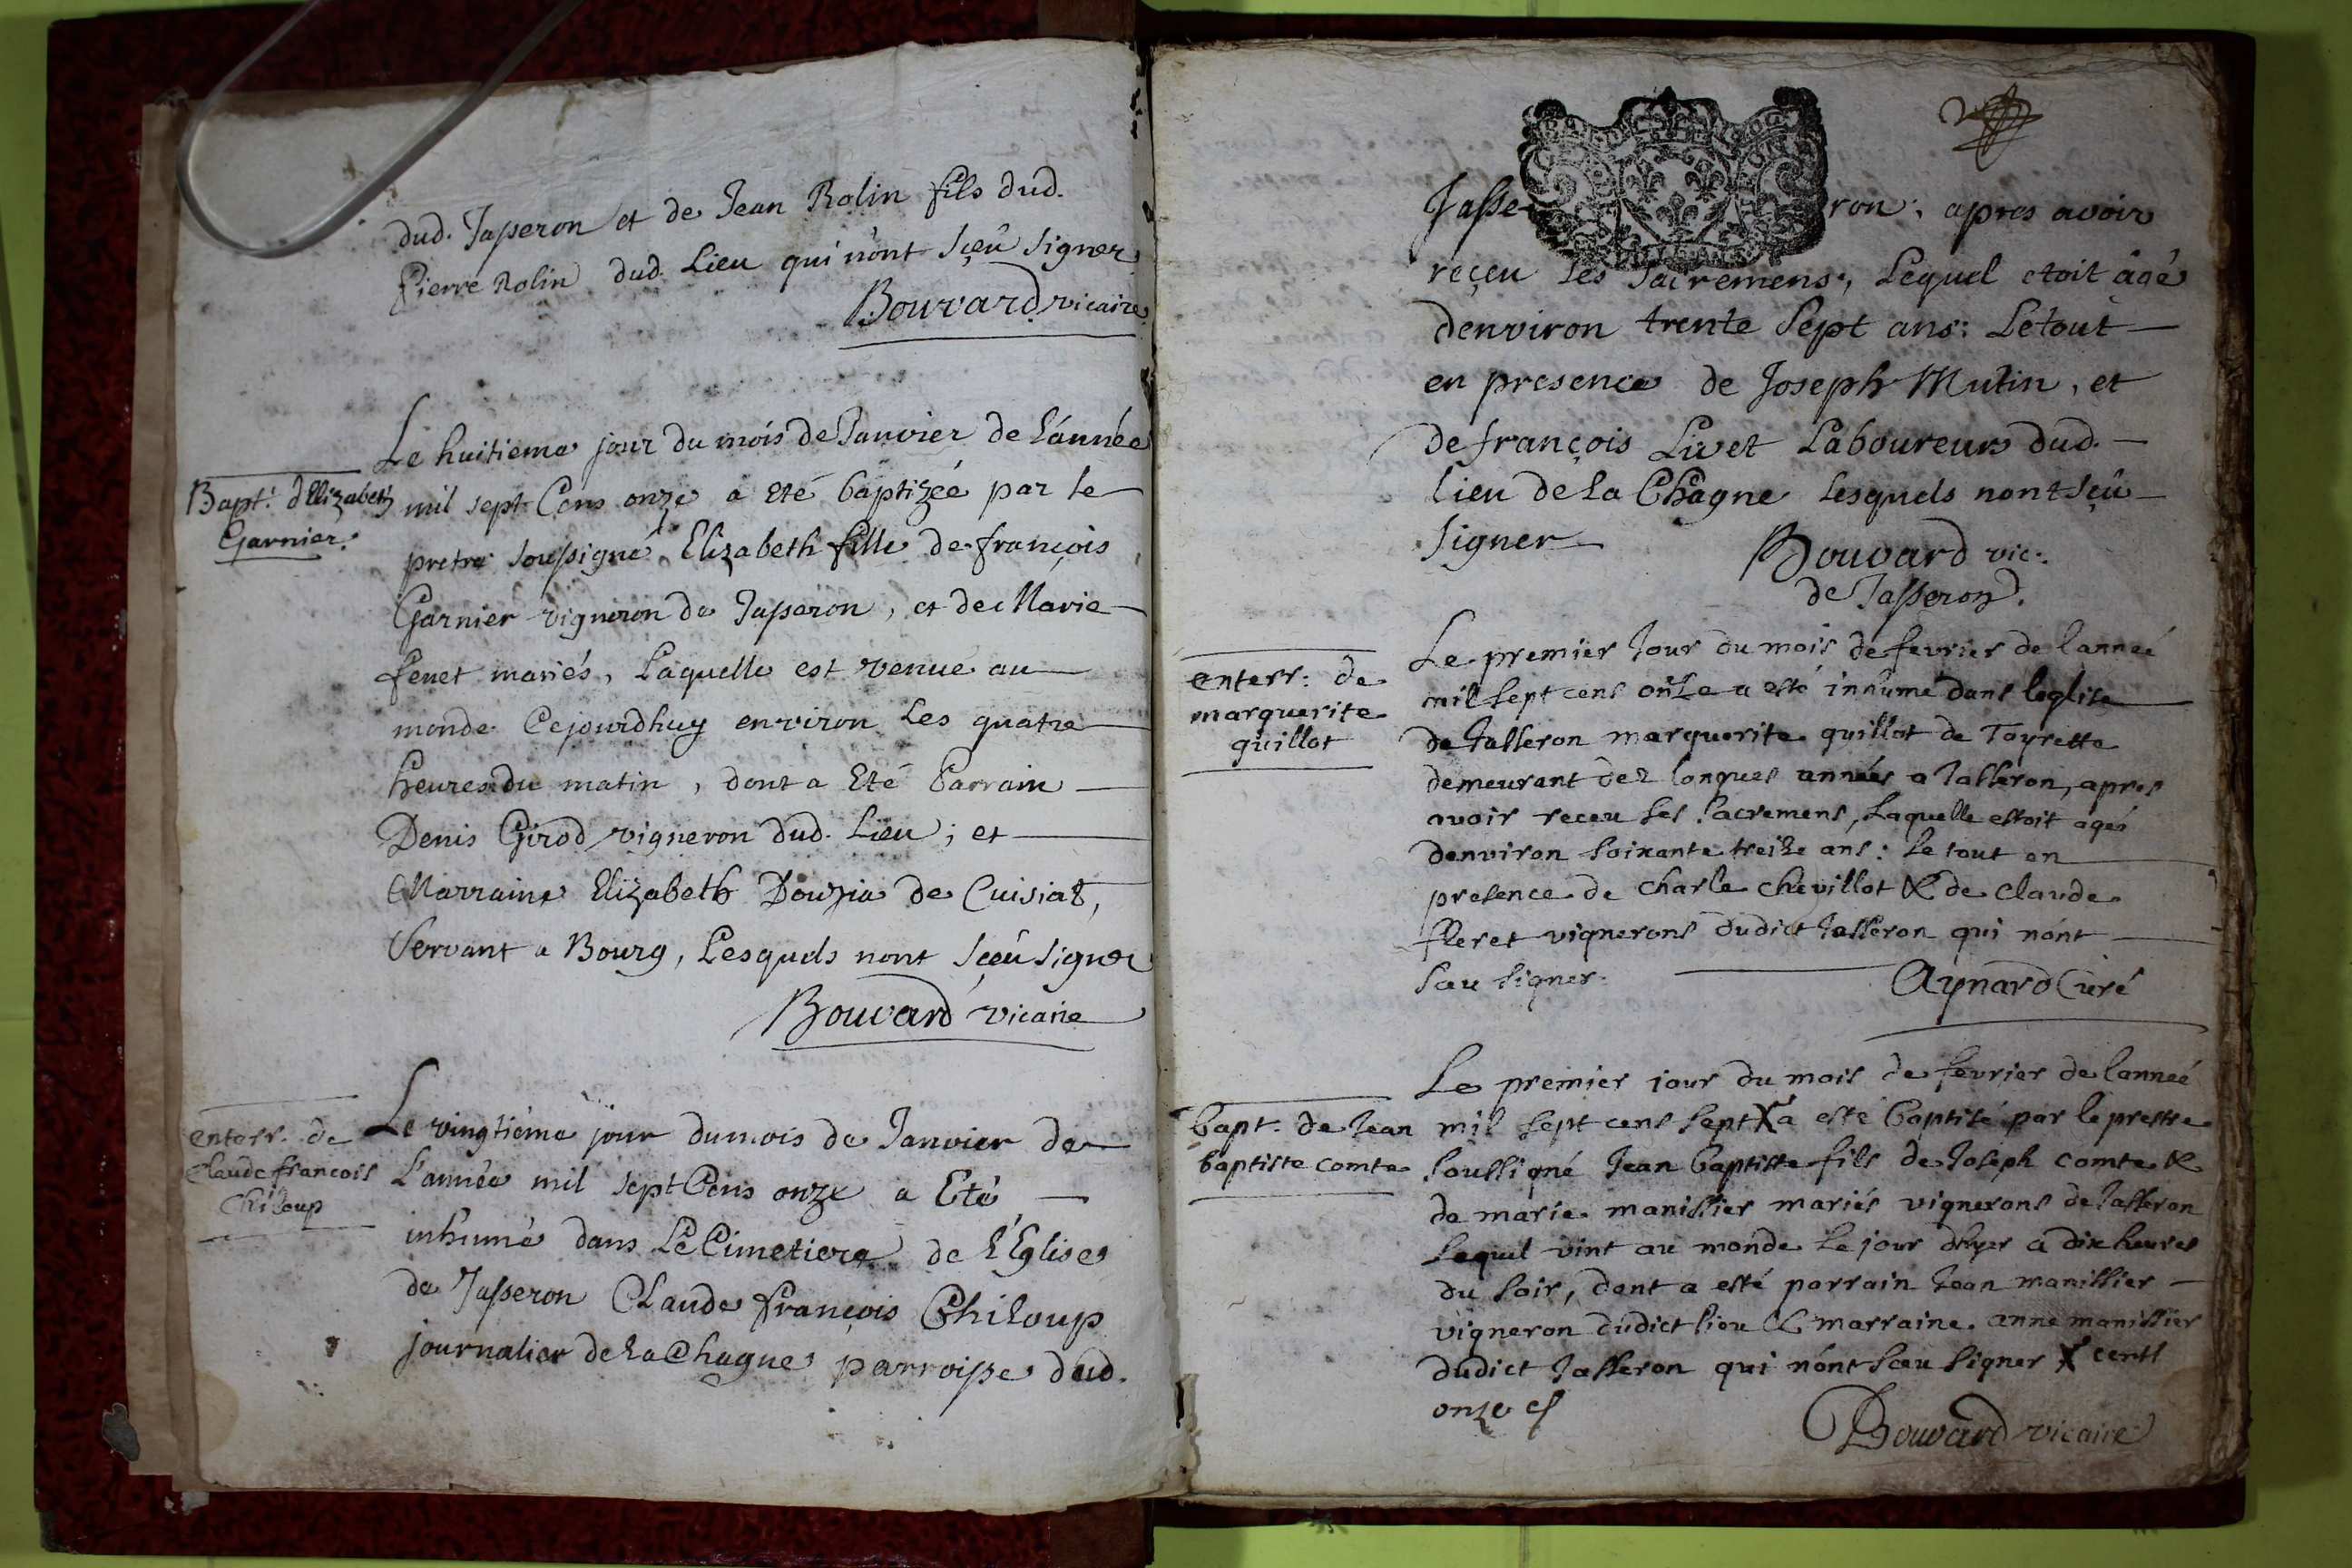 dud. Jasseron et de Jean Rolin fils dud.
Pierre Rolin dud. Lieu qui n'ont sçeû signer
Bouvard vicaire
Le huitieme jour du mois de Janvier de l'année
Bapt. d'Elizabeth
Garnier.
mil sept Cens onze a eté baptizée par le
pretre soussigné Elizabeth fille de françois
Garnier vigneron de Jasseron, et de Marie
fenet mariés, Laquelle est venue au
monde Cejourdhuy environ les quatre
heures du matin, dont a Eté Parrain
Denis Girod vigneron dud. Lieu; et
Marraine Elizabeth de Cuisiat,
Servant a Bourg, Lesquels nont sçeû signer
Bouvard vicaire
enterr. de
Claude francois
Chiloup
Le vingtiéme jour du mois de Janvier de
L'année mil sept Cens onze a Eté
inhumé dans Le Cimetiere de l'Eglise
de Jasseron Claude françois Chiloup
journalier de la Chagne parroisse dud.
Jasse ron, apres avoir
reçeu les sacremens, Lequel etoit âgé
denviron trente sept ans: Le tout
en presence de Joseph Mutin, et
de françois Livet Laboureurs dud.
lieu de la Chagne lesquels nont sçû
signer
Bouvard vic.
de Jasseron.
enterr: de
marguerite
guillot
Le premier Jour du mois de fevrier de lanneé
mil sept cens onze a esté inhumé dans leglise
de Jasseron marguerite guillot de Toyrette
demeurant dez longues années a Jasseron, apres
avoir receu ses sacremens, Laquelle estoit ageé
denviron soixante treize ans: Le tout en
presence de charle chevillot & de claude
fleret vignerons dudict Jasseron qui nont
sceu signer.
Aynard Curé
Bapt. de Jean
baptiste comte
Le premier jour du mois de fevrier de lanneé
mil sept cens sept X a esté baptisé par le prestre
soussigné Jean baptiste fils de Joseph comte &
de marie manissier mariés vignerons de Jasseron
Lequel vint au monde le jour dhyer a dix heures
du soir, dont a esté parrain Jean manissier
vigneron dudict lieu & marraine anne manissier
dudict Jasseron qui nont sceu signer X cents
onze
Bouvard vicaire